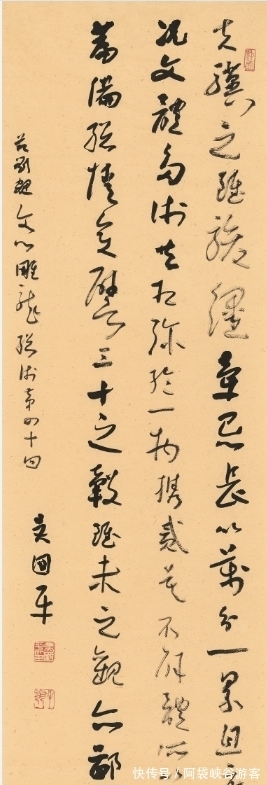 夫驥足雖駿纆牽忌長以萬分一累且
況文體多術共相彌綸一物攜貳莫不解體所以
篇備總情變譬三十之轂雖未足觀亦鄙
劉勰文心雕龍總術第四十四
吳國平
快传号 / 阿袋峡谷游客